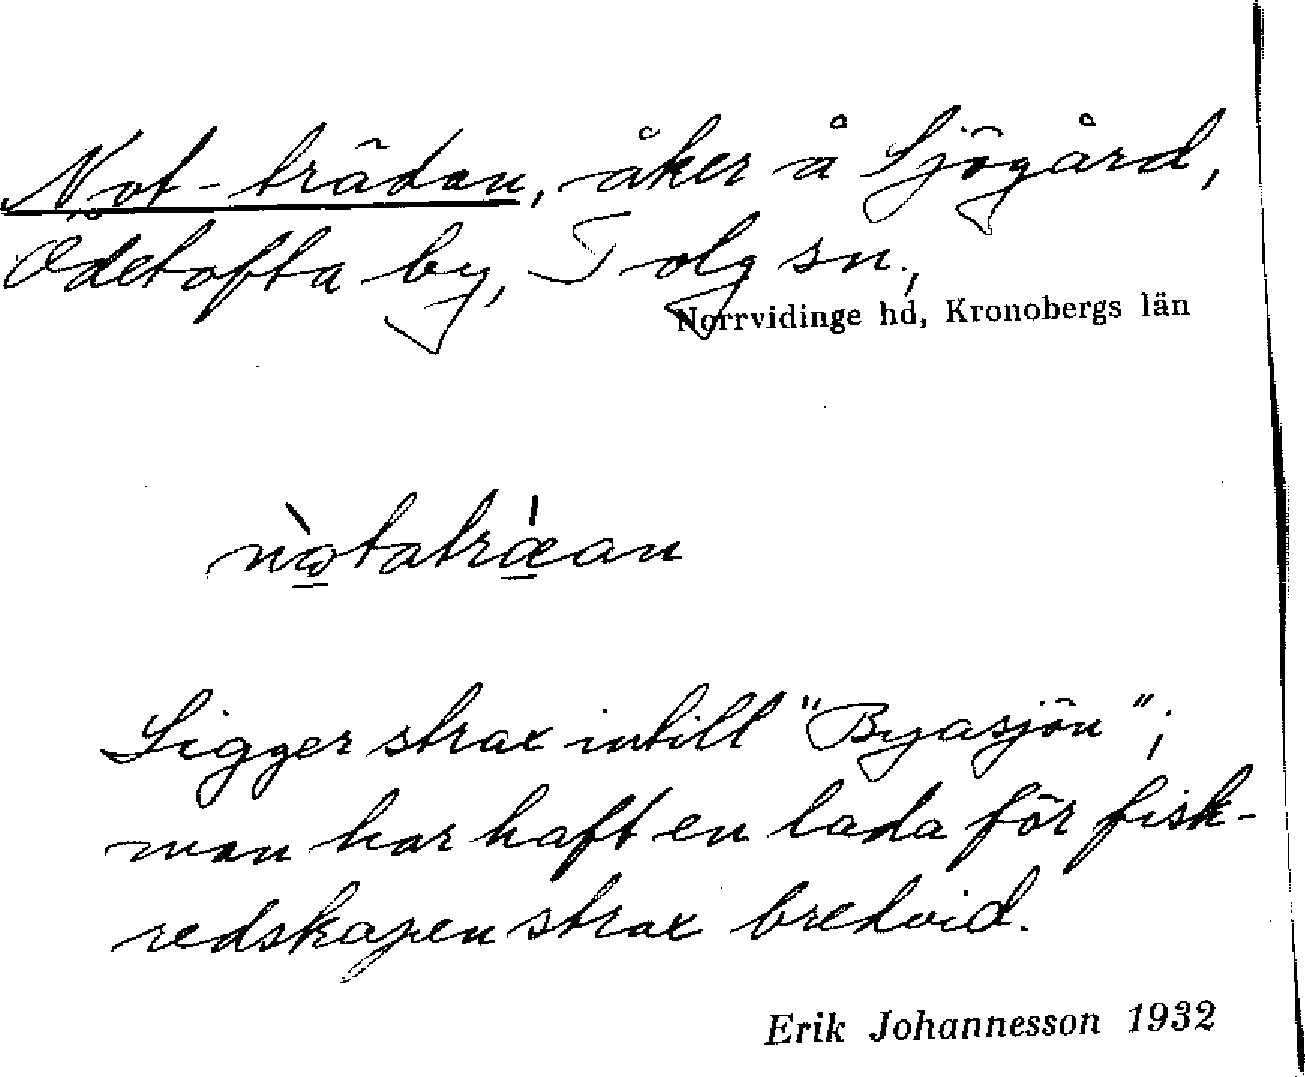 Not-trädan, åker å Sjögård,
Ödetofta by, Tolg sn.,
Norrvidinge hd, Kronobergs län
nò̱tatræ̱̍an
Ligger strax intill "Byasjön";
man har haft en lada för fisk-
redskapen strax bredvid.
Erik Johannesson 1932